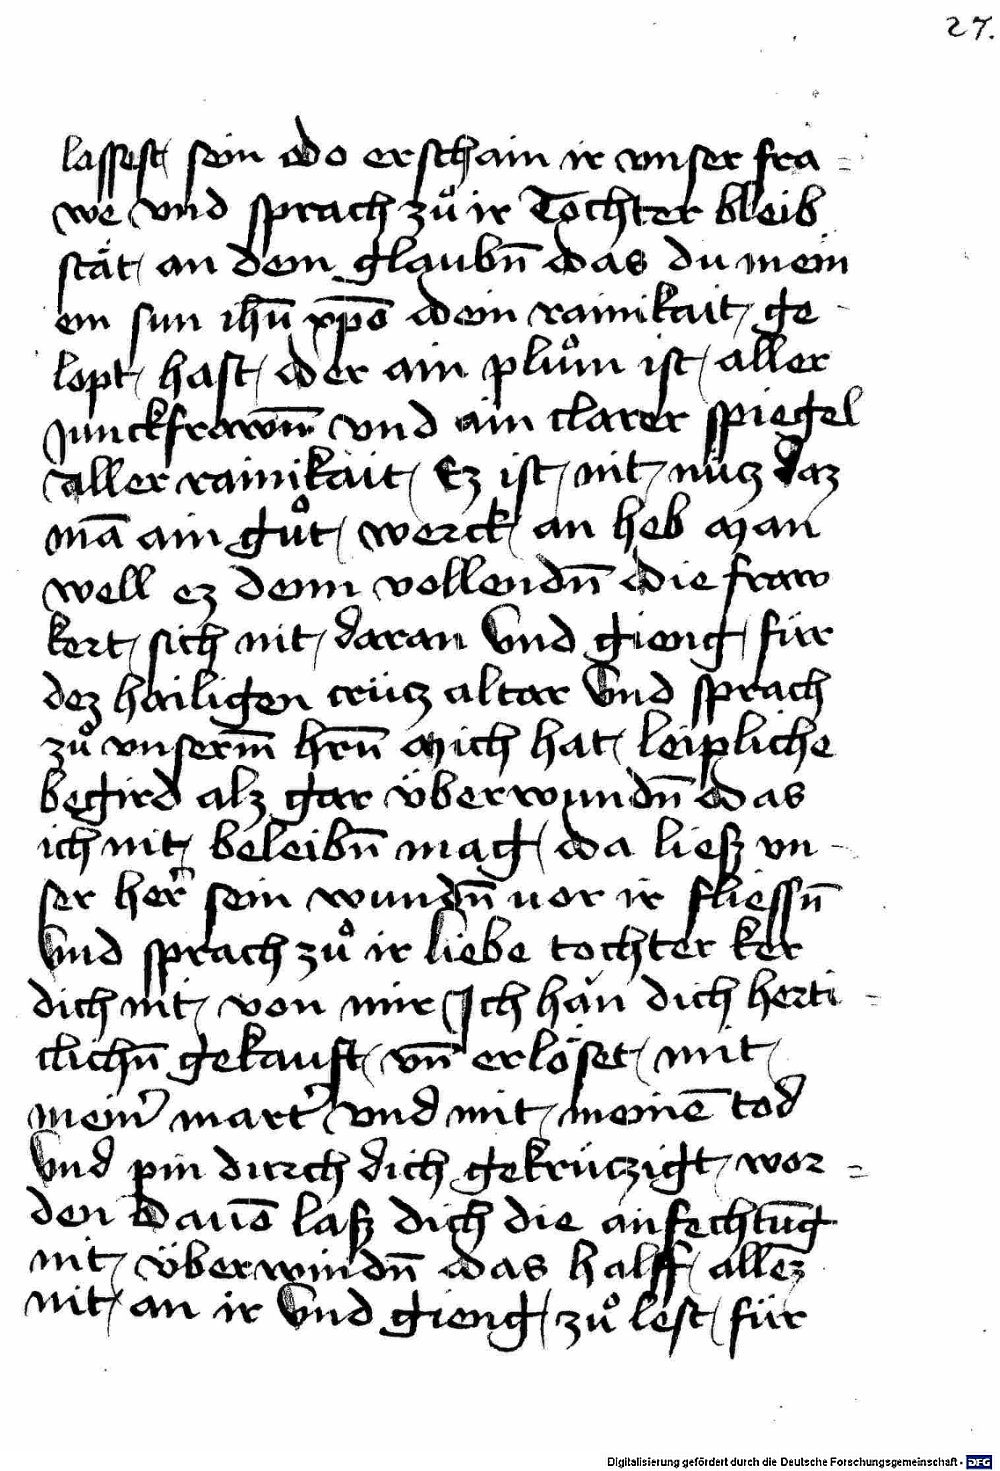 27.
lassest sein do erschain ir vnser fra =
we vnd sprach zů ir Tochter bleib
stät an dem glaubn̄ das du mein
em sun ihū xp̄o dein rainikait ge -
lopt hast der ain plům ist aller
Junckfrawn̄ vnd ain clarer spiegel
aller rainikait Ez ist nit nücz daz
mā ain gůt werck an heb man
well ez denn vollendn̄ die fraw
kert sich nit daran Vnd gieng für
dez hailigen crücz altar Vnd sprach
zů vnserm̄ hrn̄ mich hat leipliche
begird alz gar überwundn̄ das
ich nit beleibn̄ mag da ließ vn -
ser her̄ sein wundn̄ vor ir fliessn̄
Vnd sprach zů ir liebe tochter ker
dich nit von mir Ich hän dich herti =
clichn̄ gekauft vn̄ erlöset mit
mein' mart' vnd mit meinē tod
Vnd pin durch dich gekrüczigt wor =
den Dauō laß dich die anfechtūg
nit überwindn̄ das halff allēz
nit an ir Vnd gieng zů lest für
Digitalisierung gefördert durch die Deutsche Forschungsgemeinschaft - DFG